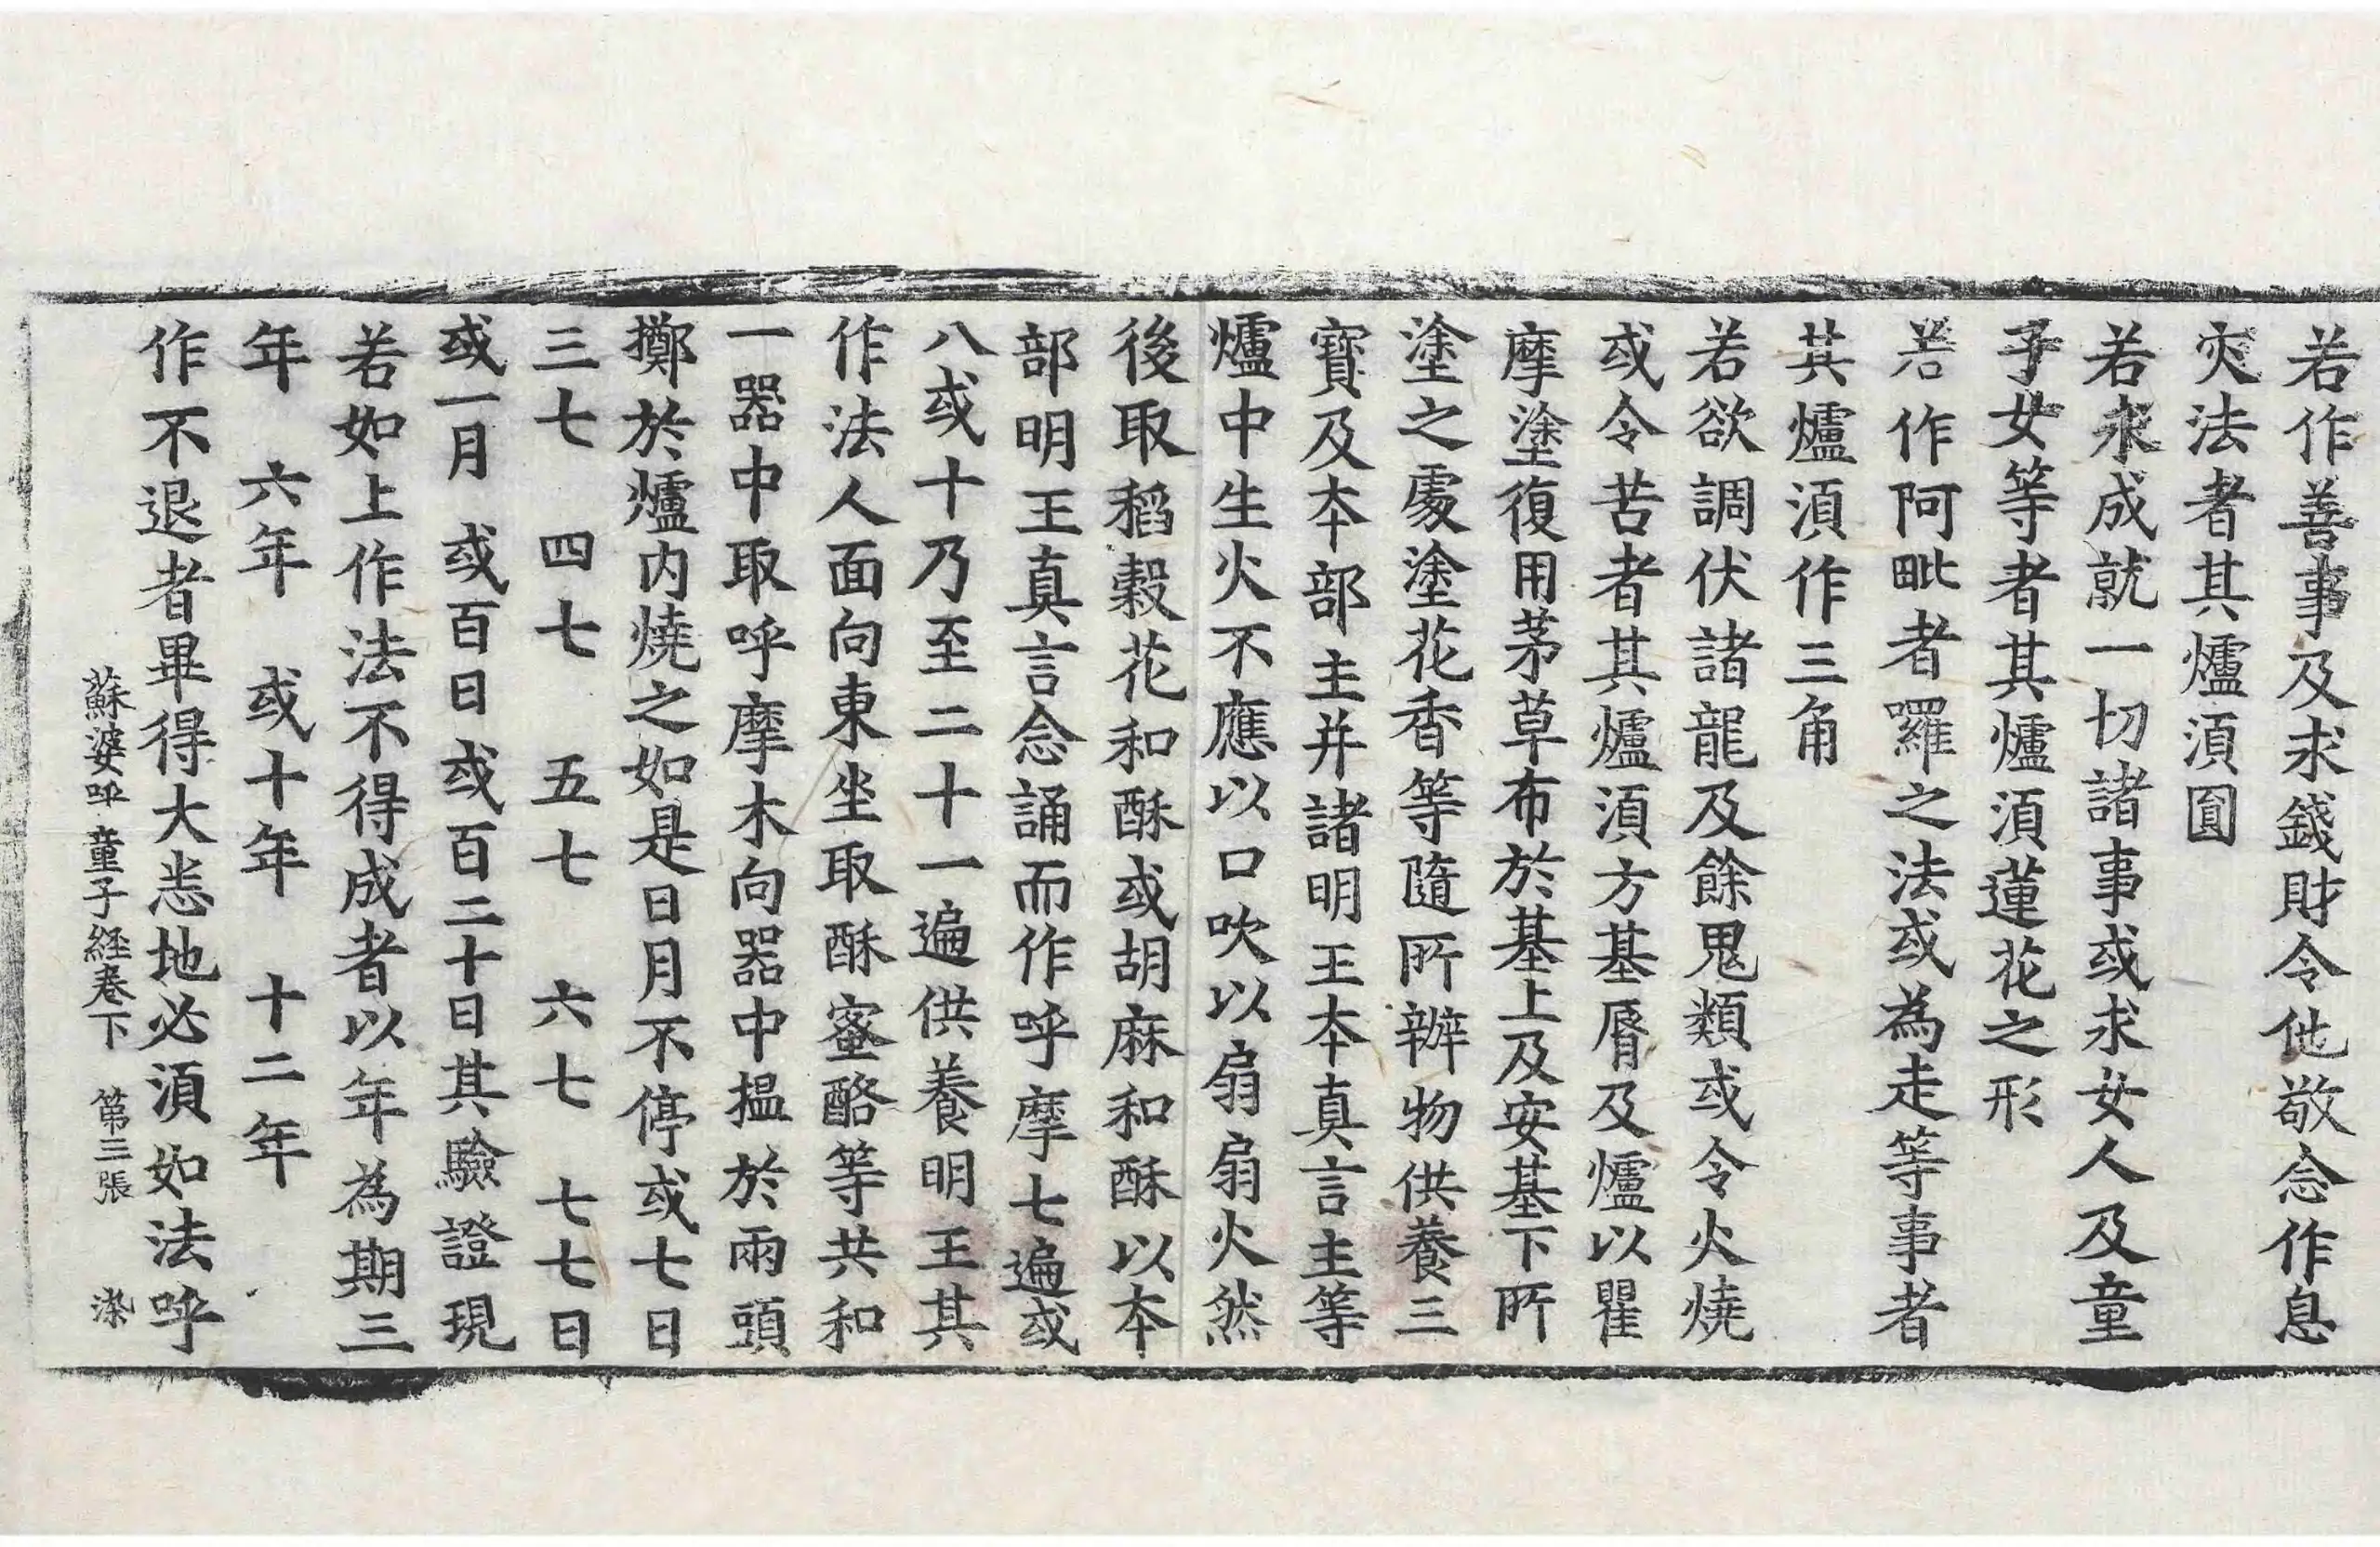 若作善事及求錢財令他敬念作息
灾法者其爐湏圓
若求成就一切諸事或求女人及童
子女等者其爐湏蓮花之形
若作阿毗者囉之法或為走等事者
其爐湏作三角
若欲調伏諸龍及餘鬼類或令火燒
或令苦者其爐湏方基脣及爐以瞿
摩塗復用茅草布於基上及安基下所
塗之處塗花香等隨所辦物供養三
寳及夲部主并諸明王夲真言主等
爐中生火不應以口吹以扇扇火然
後取稻穀花和酥或胡麻和酥以夲
部明王真言念誦而作呼摩七遍或
八或十乃至二十一遍供養明王其
作法人面向東坐取酥蜜酪等共和
一器中取呼摩木向器中搵於兩頭
擲於爐内燒之如是日月不停或七日
三七 四七 五七 六七 七七日
或一月 或百日或百二十日其驗證現
若如上作法不得成者以年為期三
年 六年 或十年 十二年
作不退者畢得大悉地必湏如法呼
蘇婆呼童子経卷下 第三張 染